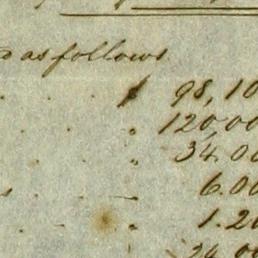 as follows
$ 98,10
" 120,00
" 34.00
6.00
" 1.20
" 24.00